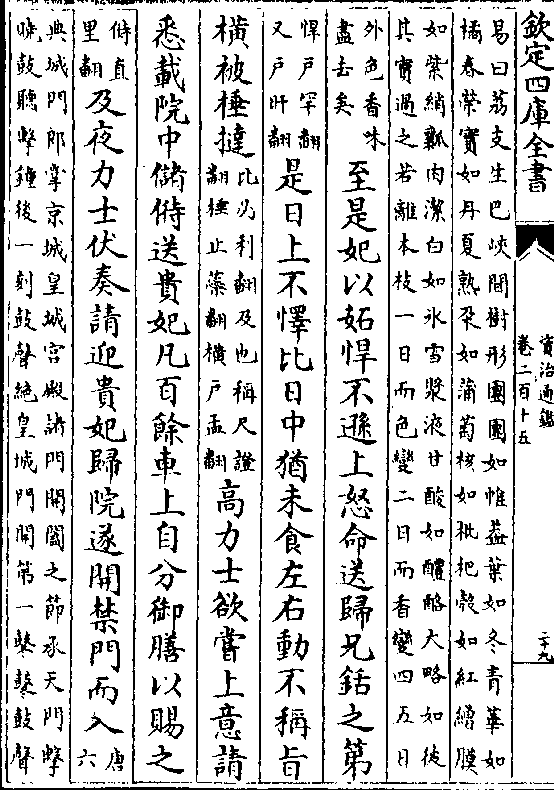 欽定四庫全書
資治通鑑
卷二百十五
二十九
易曰荔支生巴峽間樹形團團如帷葢葉如冬青華如
橘春榮實如丹夏熟朶如蒲萄核如枇杷殼如紅繒膜
如紫綃瓤肉潔白如氷雪漿液甘酸如醴酪大略如彼
其實過之若離本枝一日而色變二日而香變四五日
外色香味
盡去矣
至是妃以妬悍不遜上怒命送歸兄銛之第
悍戶罕翻
又戶旰翻
是日上不懌比日中猶未食左右動不稱旨
橫被棰撻
比必利翻及也稱尺證
翻棰止橤翻橫戶孟翻
高力士欲嘗上意請
悉載院中儲偫送貴妃凡百餘車上自分御膳以賜之
偫直
里翻
及夜力士伏奏請迎貴妃歸院遂開禁門而入
唐
六
典城門郎掌京城皇城宫殿諸門開闔之節承天門擊
曉鼓聽擊鍾後一刻鼓聲絶皇城門開第一鼕鼕鼓聲